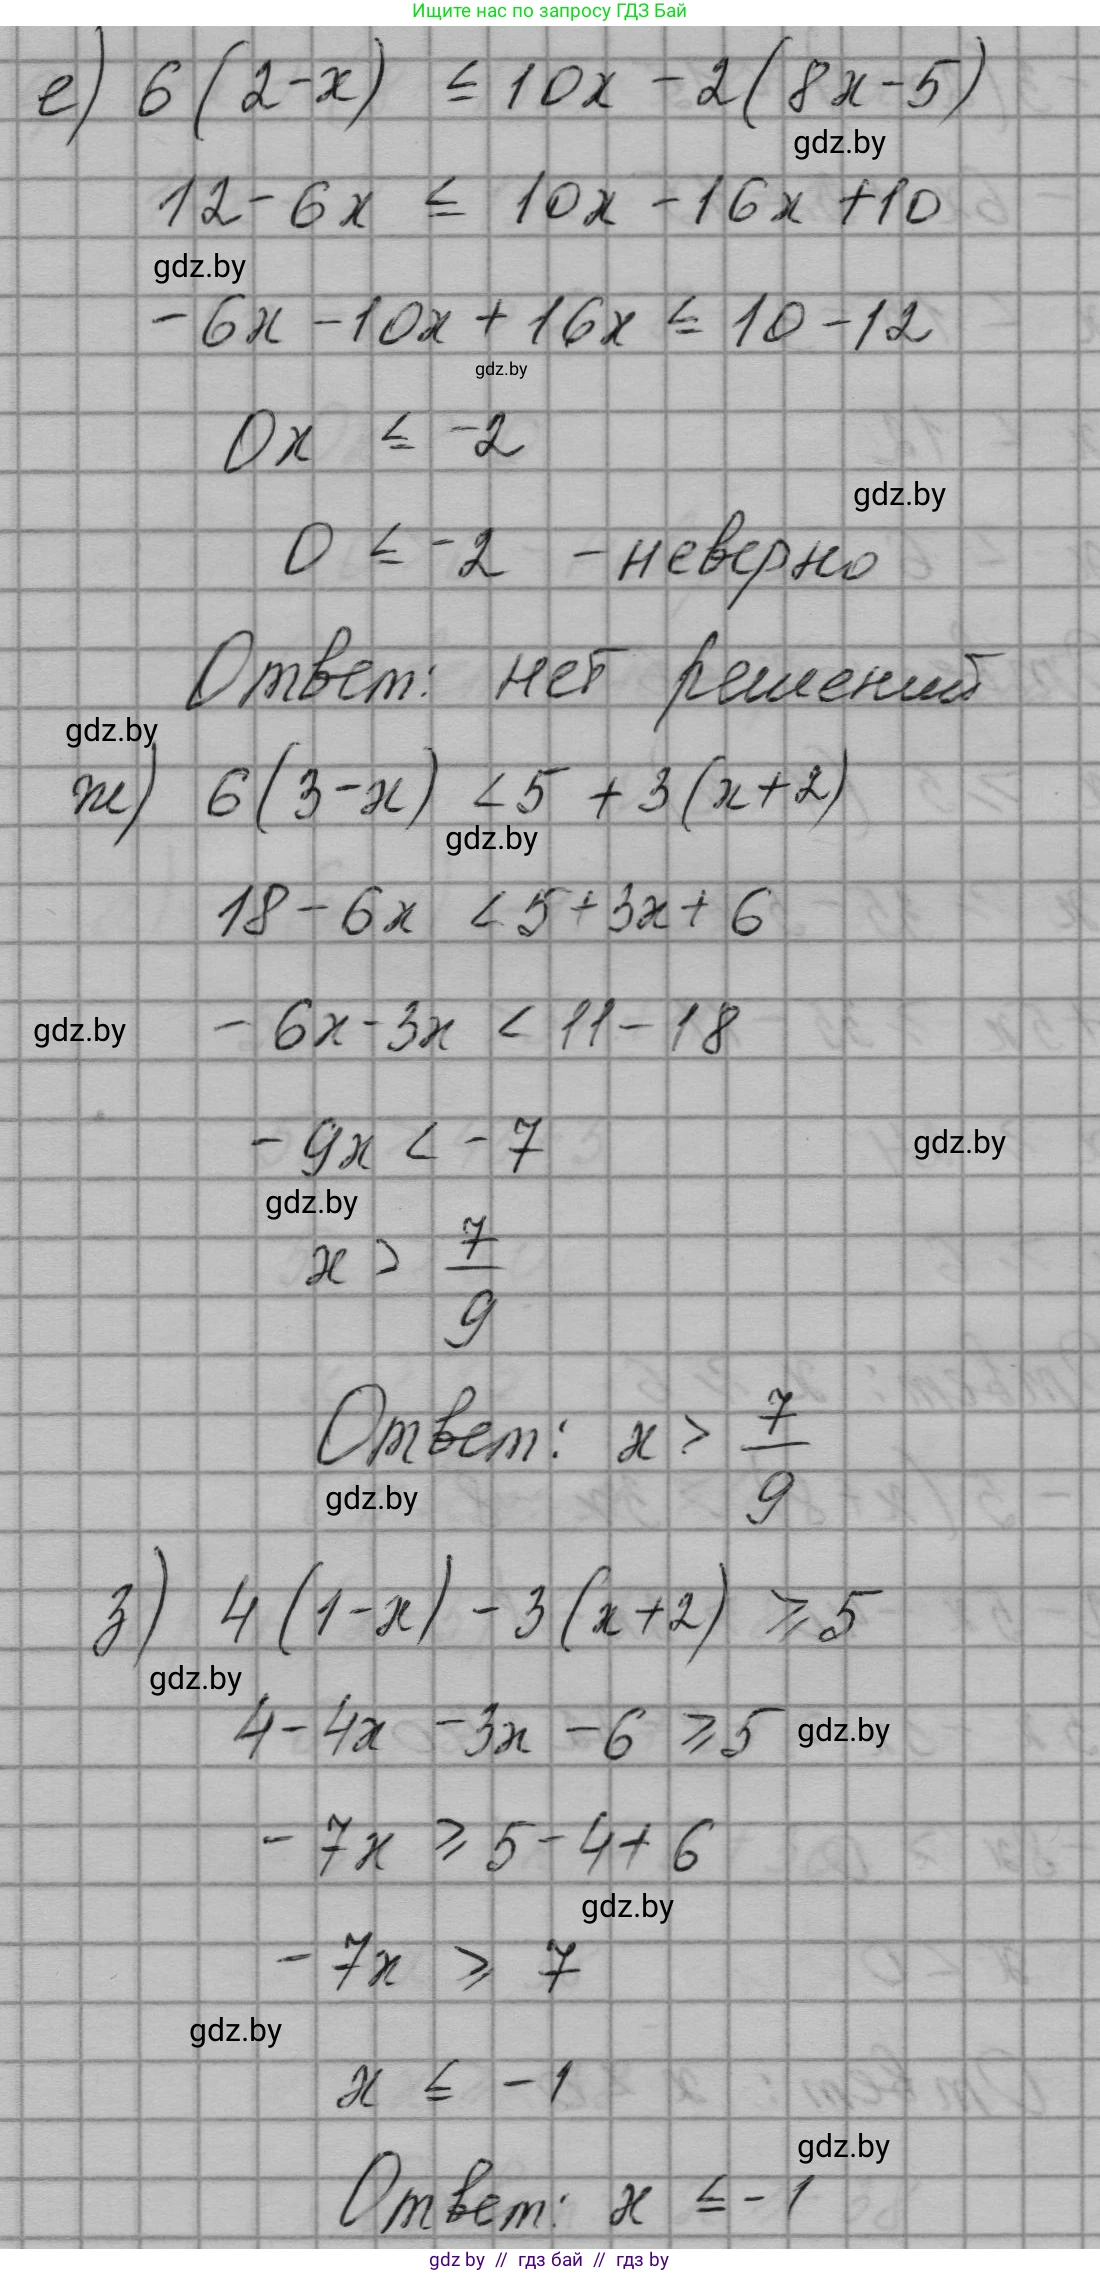 Ищите нас по запросу ГДЗ Бай
е) 6(2-x) ≤ 10x - 2(8x-5)
gdz.by
12-6x ≤ 10x -16x +10
gdz.by
-6x -10x + 16x ≤ 10 -12
gdz.by
0x ≤ -2
gdz.by
0 ≤ -2 - неверно
Ответ: нет решений
gdz.by
ж) 6(3-x) < 5 + 3(x+2)
gdz.by
18-6x < 5+3x+6
gdz.by
-6x-3x < 11-18
-9x < -7
gdz.by
gdz.by
x > 7/9
Ответ: x > 7/9
gdz.by
з) 4(1-x) - 3(x+2) ≥ 5
gdz.by
4-4x -3x -6 ≥ 5
gdz.by
-7x ≥ 5-4+6
gdz.by
-7x ≥ 7
gdz.by
x ≤ -1
gdz.by
Ответ: x ≤ -1
gdz by // гдз бай // гдз by